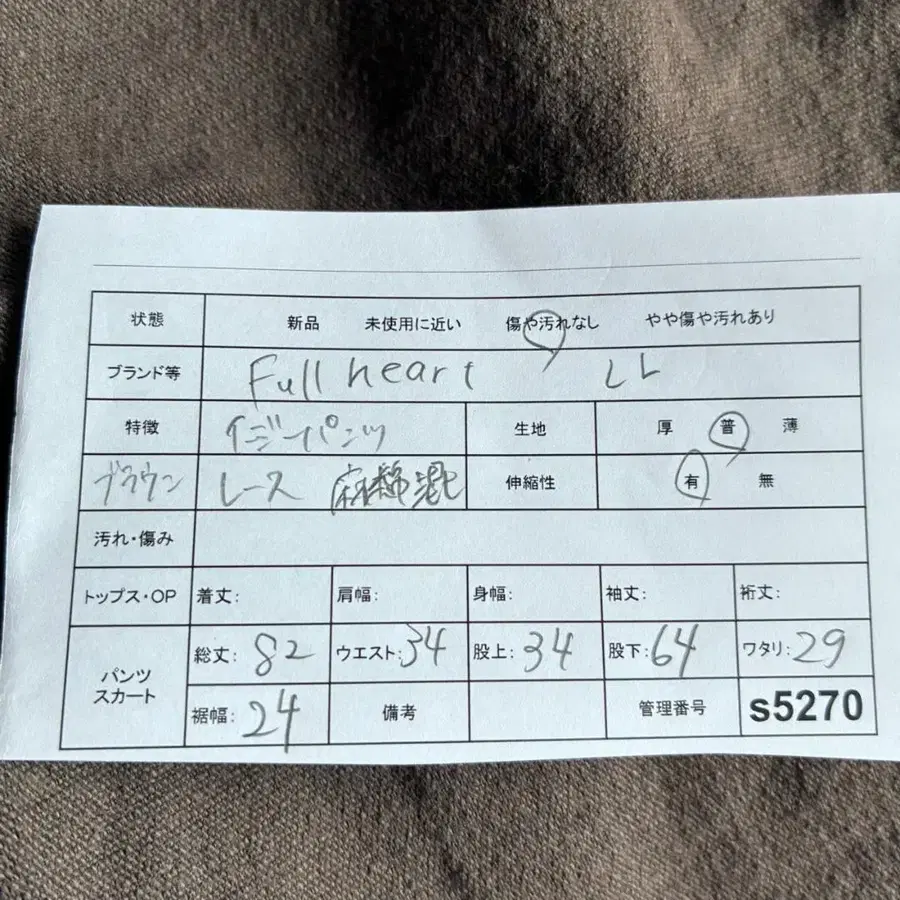 状態 新品 未使用に近い 傷や汚れなし やや傷や汚れあり
ブランド等 Full heart LL
特徴 イージーパンツ 生地 厚 普 薄
ブラウン レース 麻綿混 伸縮性 有 無
汚れ・傷み
トップス・OP 着丈: 肩幅: 身幅: 袖丈: 裄丈:
パンツ スカート 総丈: 82 ウエスト: 34 股上: 34 股下: 64 ワタリ: 29
裾幅: 24 備考 管理番号 s5270